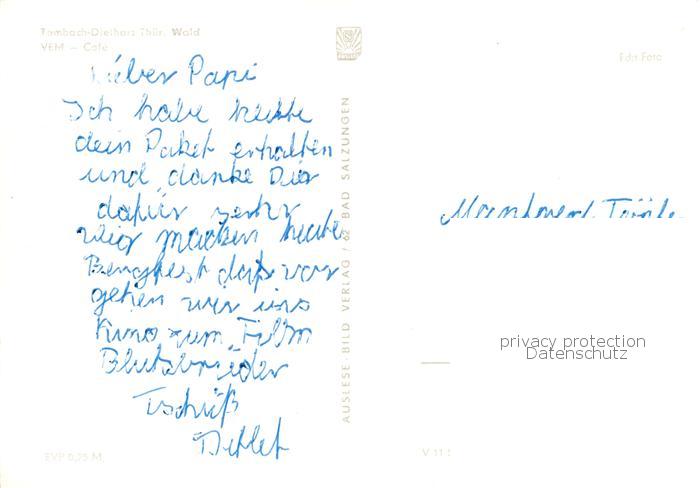 Tambach-Dietharz Thür. Wald
VEM - Café
Lieber Papi
Ich habe heute
dein Paket erhalten
und danke Dir
dafür sehr
wir machen heute
Bergfest davor
gehen wir ins
Kino zum Film
Blutsbrüder
Tschüß
Detlef
EVP 0,25 M
AUSLESE-BILD VERLAG / 62 BAD SALZUNGEN
Foto
privacy protection
Datenschutz
V 11